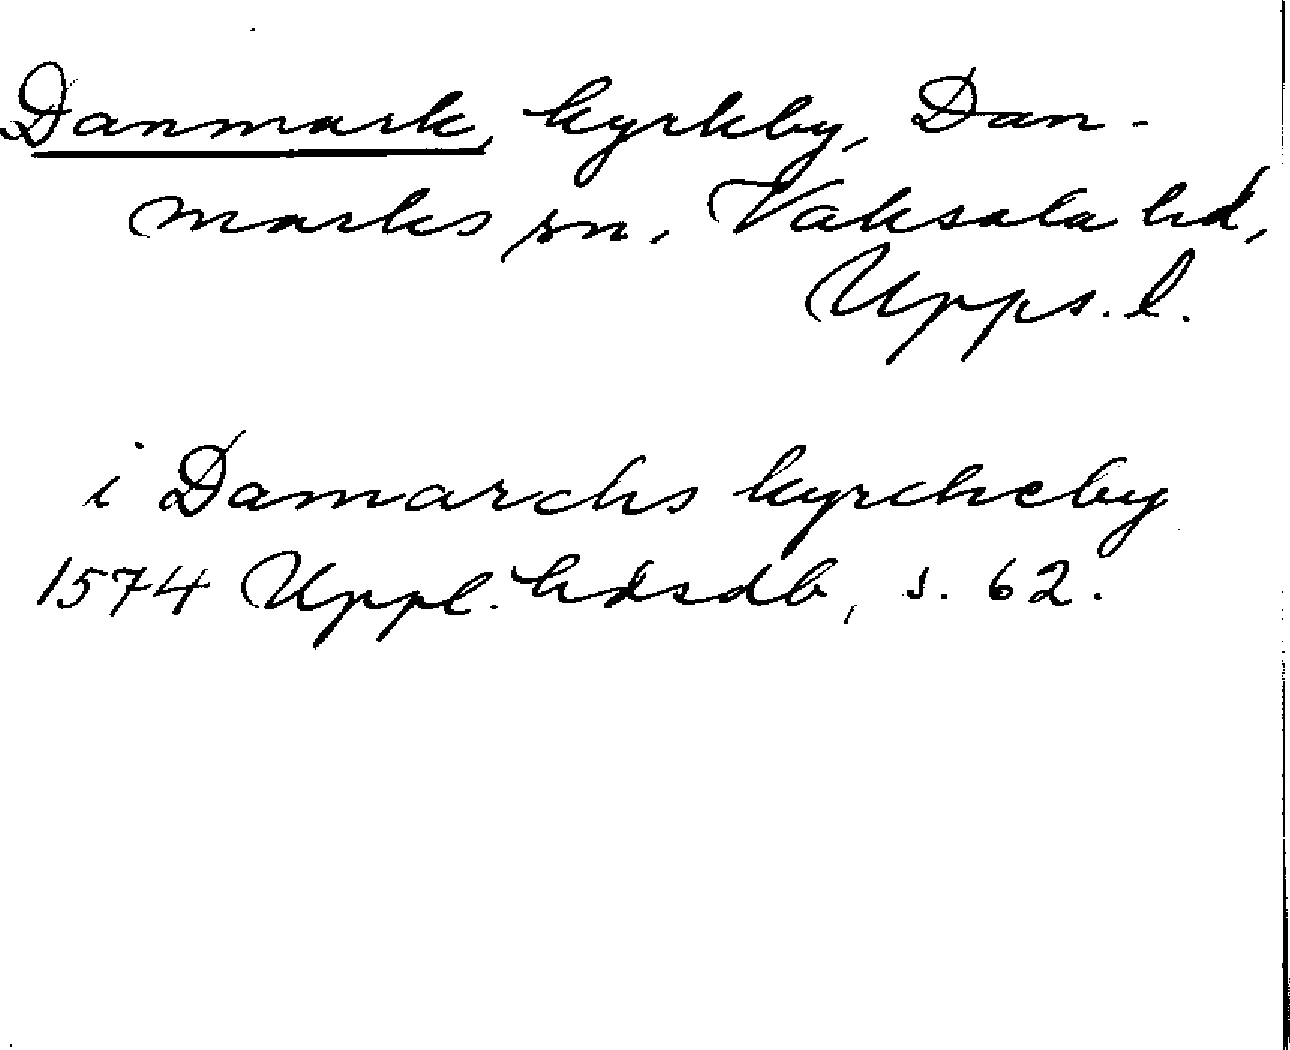 Danmark, kyrkby, Dan-
marks sn, Vaksala hd,
Upps. l.
i Damarchs kyrcheby
1574 Uppl. hdsdb, s. 62.